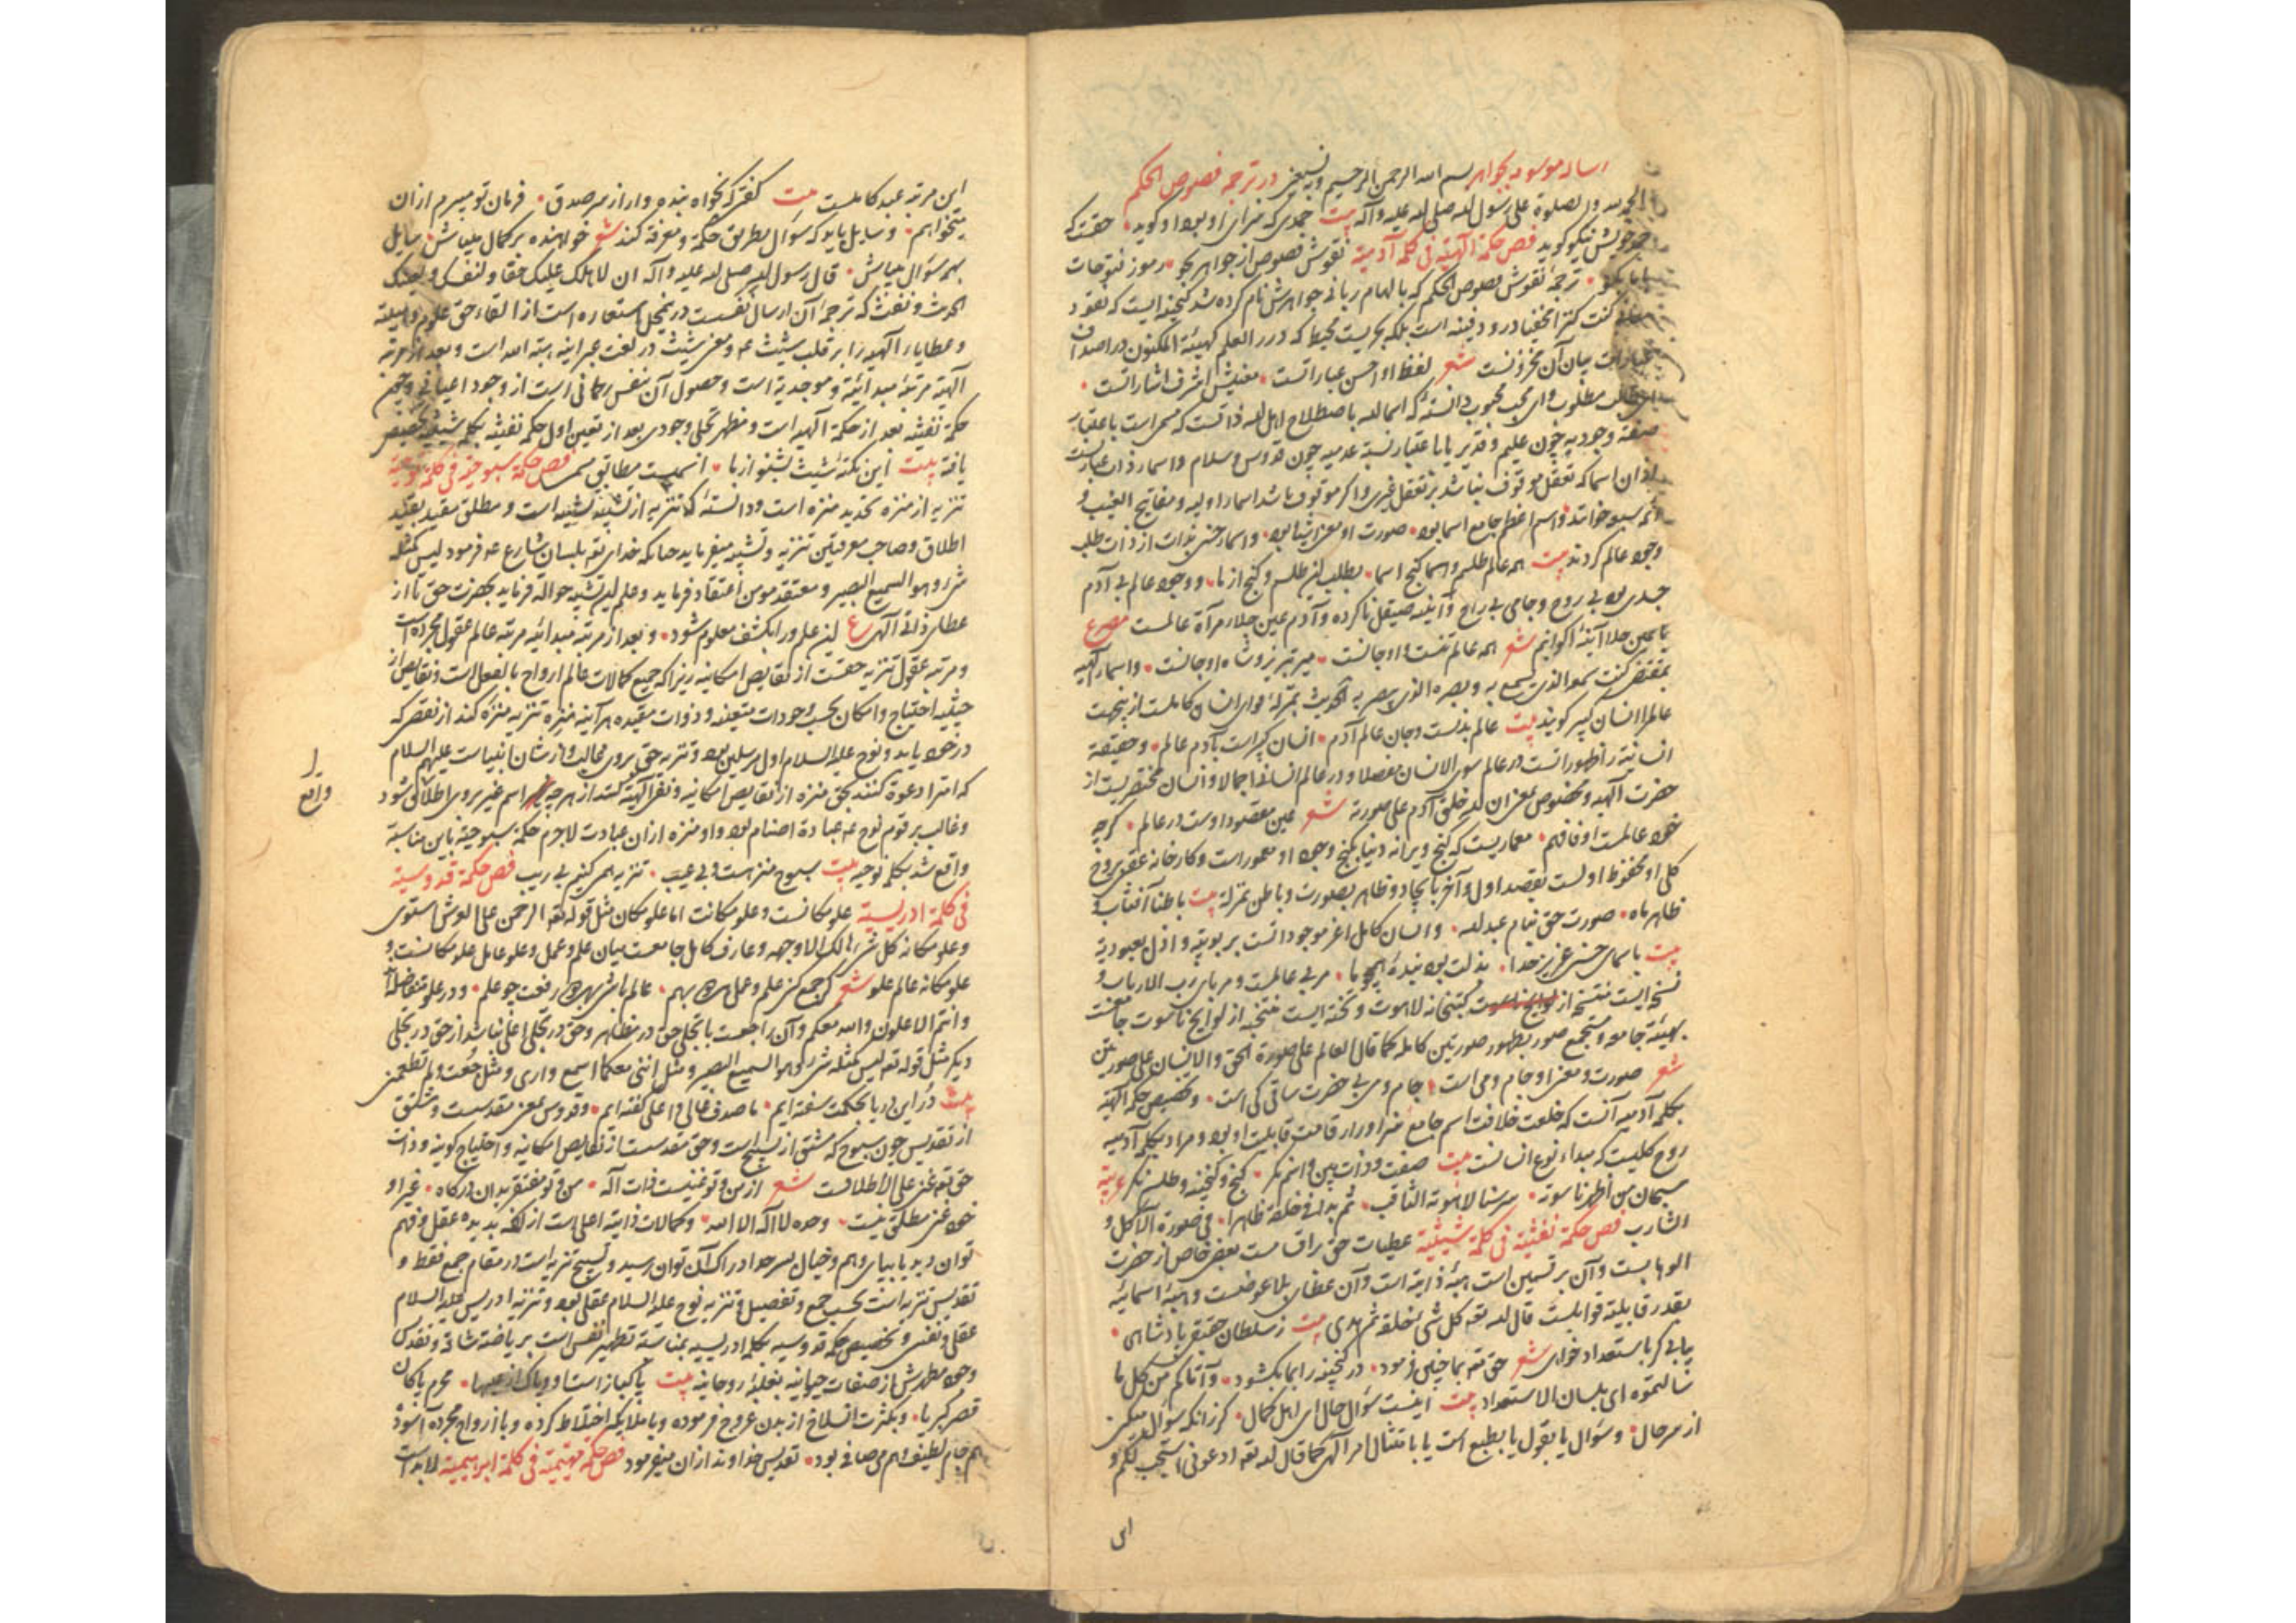 رساله موسومه بجواهر بسم الله الرحمن الرحیم وبه نستعین در ترجمه فصوص الحکم
الحمد لله والصلوة علی رسول الله صلی الله علیه وآله بیت حمدی که سزای او بود او گوید • حقست که
خود خویش نیکو گوید فص حکمة الهیة فی کلمة آدمیة نقوش فصوص از جواهر بجو • رموز فتوحات
ترجمهٔ نقوش فصوص الحکم که بالهام ربانی جواهرش نام کرده شد گنجینه ایست که نقود
کنت کنزا مخفیا درو دفینه است بلکه بحریست محیط که درر العلم کهیئة المکنون در اصداف
عبارات بیان آن مخزونست شعر لفظ او احسن عباراتست • معنیش اشرف اشاراتست •
ای طالب مطلوب وای محب محبوب دانستهٔ که اسم الله باصطلاح اهل الله ذاتست که مسمی است باعتبار
صفة وجودیه چون علیم و قدیر یا باعتبار نسبة عدمیه چون قدوس و سلام و اسماء ذات عبارتست
از آن اسما که تعقل موقوف نباشد بر تعقل غیری و اگر موقوف باشد اسماء اولیه و مفاتیح الغیب و
ائمه سبعه خوانند و اسم اعظم جامع اسما بود • صورت او معنی اشیا بود • و اسماء حسنی بذات از ذات طلب
وجود عالم کردند بیت همه عالم طلسم و اسما گنج اسما • بطلب این طلسم و گنج از ما • و وجود عالم بی آدم
جسدی بود بی روح و جامی بی راح و آئینه صیقل ناکرده و آدم عین جلاء مرآة عالمست مصرع
ما عین جلاء آینهٔ اکوانیم شعر همه عالم تنست و او جانست • میر تبریز و شاه اوجانست • و اسماء الهیه
بمقتضی کنت سمعه الذی یسمع به و بصره الذی یبصر به الحدیث بمنزلهٔ قوای انسان کاملست ازینجهت
عالم را انسان کبیر گویند بیت عالم بدنست و جان عالم آدم • انسان کبیر است بآدم عالم • و حقیقة
انسانیة را ظهوراتست در عالم سوی الانسان مفصلا و در عالم انسانی اجمالا و انسان مختصریست از
حضرت الهیه و مخصوص بمعنی ان الله خلق آدم علی صورته شعر عین مقصود اوست در عالم • گرچه
خود عالمست او فافهم • معماریست که گنج ویرانه دنیا بگنج وجود او معمور است و کارخانه عقبی بروح
کلی او محفوظ اولست بقصد اول و آخر بایجاد و ظاهر بصورت و باطن بمنزلة بیت باطنا آفتاب و
ظاهر ماه • صورت حق بنام عبد الله • و انسان کامل اعز موجوداتست بربوبیة و اذل بعبودیة
بیت باسمای حسنی عزیز خدا • بذلت بود بندهٔ همچو ما • مربی عالمست و مربای رب الارباب و
نسخه ایست منتسخه از کتبخانه لاهوت و تخته ایست منتخبه از لوایح ناسوت جامعست
بهیئة جامعه و مستجمع صور بظهور صورتین کامله کما قال العالم علی صورة الحق والانسان علی صورتین
شعر صورت و معنی او جام و می است • جام و می بی حضرت ساقی کی است • و تخصیص حکمة الهیة
بکلمهٔ آدمیه آنست که خلعت خلافت اسم جامع سزاوار قامت قابلیت او بود و مراد بکلمه آدمیه
روح کلیست که مبداء نوع انسانست بیت صفت و ذات بین و اسم نگر • گنج و گنجینه و طلسم نگر عربیة
سبحان من اظهر ناسوته • سر سنا لاهوته الثاقب • ثم بدا فی خلقه ظاهرا • فی صورة الآکل و
الشارب فص حکمة نفثیة فی کلمة شیثیة عطیات حق براقسامست بعضی خاص از حضرت
الوهابست و آن بر قسمین است هبهٔ ذاتیة است و آن عطای بلا عوضست و هبهٔ اسمائیه
بقدر قابلیة قوابلست قال الله تعه کل شی خلقه ثم هدی بیت ز سلطان حقیقی پادشاهی •
بیابی گر باستعداد خواهی شعر حق تعه بما چنین فرمود • در گنجینه را بما بگشود • و آتاکم من کل ما
سألتموه ای بلسان الاستعداد بیت اینست سؤال حال ای اهل کمال • گر زانکه سوال میکنی
از سر حال • و سؤال یا بقول یا بطبع است یا بامتثال امر الهی کما قال الله تعه ادعونی استجب لکم و
ای
این مرتبه عبد کاملست بیت گفتی که بخواه بنده وار از سر صدق • فرمان تو میبرم از آن
میخواهم • و سایل باید که سؤال بطریق حکمة و معرفة کند شعر خواهنده بر کمال میباش • سایل
بهمه سؤال میباش • قال رسول الله صلی الله علیه و آله ان لاهلک علیک حقا و لنفسک و لعینک
الحدیث و نفث که ترجمه آن ارسال نفسست در ینمحل استعاره است از القاء حق علوم وهبیه
و عطایاء الهیه را بر قلب شیث عه و معنی شیث در لغت عبرانیه هبة الله است و بعد از مرتبه
الهیة مرتبهٔ مبدائیة و موجدیة است و حصول آن بنفس رحمانی است از وجود اعیانی و چون
حکمة نفثیه بعد از حکمة الهیه است و مظهر تجلی وجودی بعد از تعین اول حکمة نفثیه بکلمه شیثیه تخصیص
یافته بیت این نکتهٔ شیث بشنو از ما • اسمیست مطابق مسما فص حکمة سبوحیة فی کلمة نوحیة
تنزیه از منزه تحدید منزه است و دانستهٔ که تنزیه از تشبیه تشبیه است و مطلق مقید بقید
اطلاق و صاحب معرفتین تنزیه و تشبیه میفرماید چنانکه خدای تعه بلسان شارع عه فرمود لیس کمثله
شیء و هو السمیع البصیر و معتقد مومن اعتقاد فرماید و علم این تشبیه حواله فرماید بحضرت حق تا از
عطای ذاتی الهی ع این علم ورا بکشف معلوم شود • و بعد از مرتبه مبدائیه مرتبه عالم عقول مجرده است
و مرتبه عقول تنزیه حقست از نقایص امکانیه زیرا که جمیع کمالات عالم ارواح بالفعل است و نقایص از
حیثیه احتیاج و امکان بحسب وجودات متعینه و ذوات مقیده هر آینه منزه تنزیه منزه کند از نقصی که
در خود یابد و نوح علیه السلام اول مرسلین بود و تنزیه حق بروی غالب و از شان انبیاست علیهم السلام
که امت را دعوة کنند بحق منزه از نقایص امکانیه و نفی الهیة کنند از هرچه اسم غیر بروی اطلاق شود
و غالب بر قوم نوح عه عبادة اصنام بود و او منزه از آن عبادت لاجرم حکمة سبوحیة باین مناسبة
واقع شد بکلمه نوحیه بیت سبوح منزهست و بی عیب • تنزیه همی کنیم بی ریب فص حکمة قدوسیة
فی کلمة ادریسیة علو مکانست و علو مکانت اما علو مکان مثل قوله تعه الرحمن علی العرش استوی
و علو مکانه کل شیء هالک الا وجهه و عارف کامل جامعست میان علم و عمل و علو عامل علو مکانست و
علو مکانه عالم علو شعر گر جمع کنی علم و عمل هر دو بهم • عالم باشی بهر دو رفعت چو علم • و در علو متفاضله
و انتم الاعلون و الله معکم و آن راجعست با تجلی حق در مظاهر و حق در تجلی اعلی نباشد از حق در تجلی
دیگر مثل قوله تعه لیس کمثله شیء و هو السمیع البصیر و مثل اننی معکما اسمع و اری و مثل جعت فلم تطعمنی
بیت در این دریا بحکمت سفته ایم • ما صدف عالی و اعلی گفته ایم • و قدوس بمعنی مقدسست و مشتق
از تقدیس چون سبوح که مشتق از تسبیح است و حق مقدسست از نقایص امکانیه و احتیاج کونیه و ذات
حق تعه غنی علی الاطلاقست شعر از من و تو غنیست ذات اله • من و تو مفتقر بدان درگاه • غیر او
خود غنی مطلق نیست • وحده لا اله الا الله • و کمالات ذاتیه اعلی است از آنکه بدیده عقل و فهم
توان دید یا بپای وهم و خیال بسرحد ادراک آن توان رسید و تسبیح تنزیه است در مقام جمع فقط و
تقدیس تنزیه است بحسب جمع و تفصیل و تنزیه نوح علیه السلام عقلی بود و تنزیه ادریس علیه السلام
عقلی و نفسی و تخصیص حکمة قدوسیه بکلمه ادریسیه بمناسبة تطهیر نفس است بریاضة شاقه و تقدس
وجود مطهرش از صفات حیوانیه بغلبهٔ روحانیه بیت پاکبازاست او و پاک از عیبها • محرم پاکان
قصر کبریا • و بکثرت انسلاخ از بدن عروج فرموده و با ملایکه اختلاط کرده و با ارواح مجرده آسوده
هم جام لطیف و هم می صافی بود • تقدیس خداوند از آن میفرمود فص حکمة مهیمیة فی کلمة ابراهیمیة لابد است
واقع